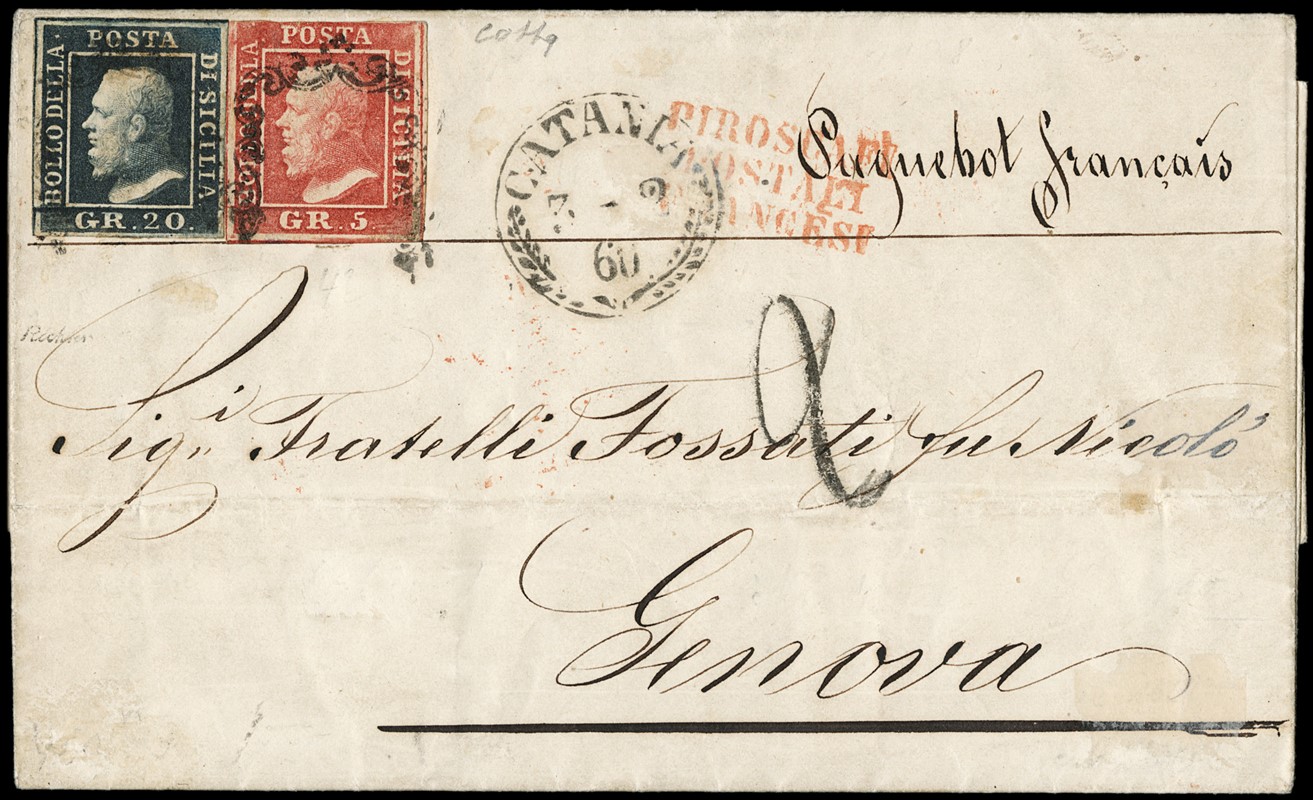 POSTA
BOLLO DELLA
DI SICILIA
GR. 20.
POSTA
BOLLO DELLA
DI SICILIA
GR. 5.
CATANIA
3 - 2
60
PIROSCAFI
POSTALI
FRANCESI
Paquebot français
2
Sig.ri Fratelli Fossati fu Nicolò
Genova